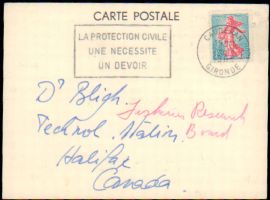 CARTE POSTALE
LA PROTECTION CIVILE
UNE NECESSITE
UN DEVOIR
GIRONDE
Dr Bligh
Fisheries Research
Board
Technol. Station
Halifax
Canada.